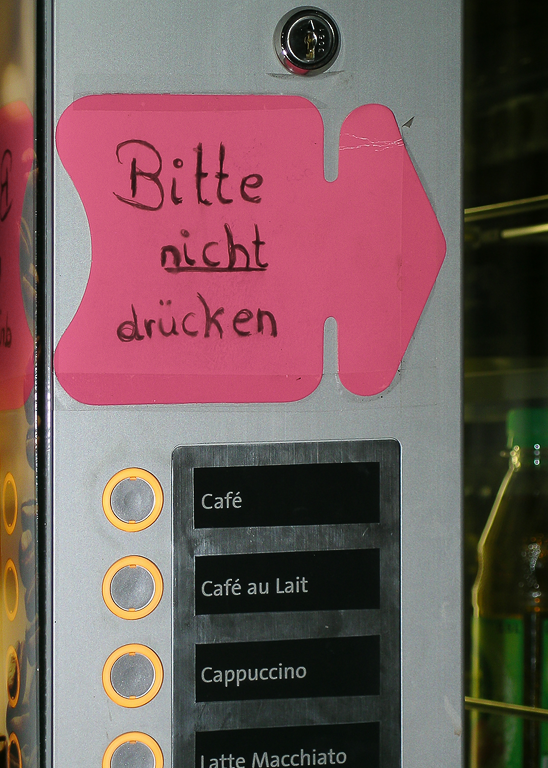 Bitte
nicht
drücken
Café
Café au Lait
Cappuccino
Latte Macchiato